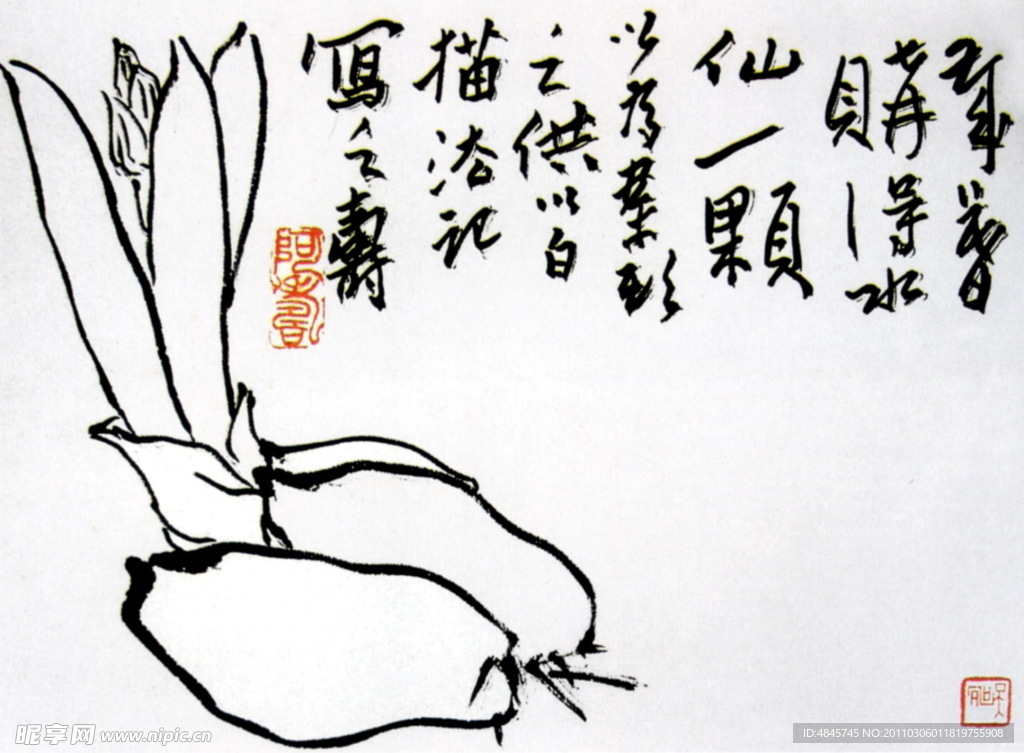 歲暮
購得水
仙一顆
以為案頭
之供以白
描法記
寫之壽
昵享网 www.nipic.cn
ID:4845745 NO:20110306011819755908